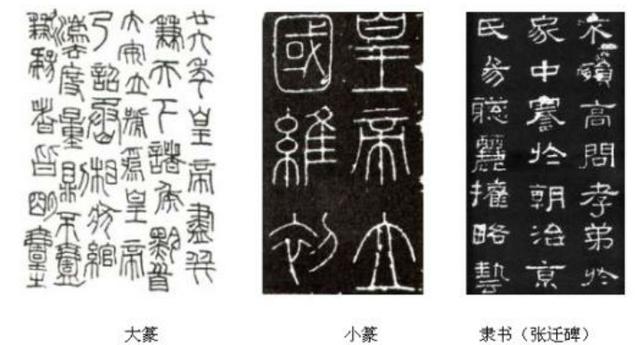 廿六年皇帝盡并
兼天下諸侯黔首
大安立號為皇帝
乃詔丞相狀綰
灋度量則不壹
歉疑者皆明壹之
皇帝立
國維初
不殞高問孝弟於
家中謇於朝治京
氏易聰麗權略藝
大篆
小篆
隶书（张迁碑）